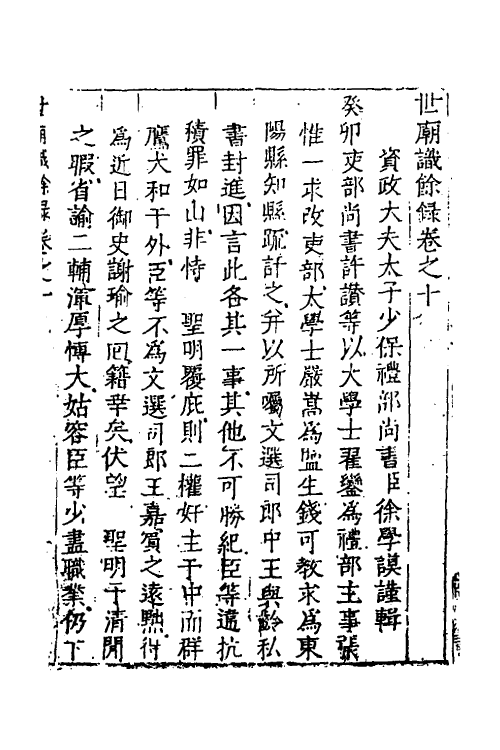 世廟識餘録卷之十
資政大夫太子少保禮部尚書臣徐學謨謹輯
癸卯吏部尚書許讚等以大學士翟鑾為禮部主事張
惟一求改吏部大學士嚴嵩為監生錢可教求為東
陽縣知縣䟽訐之并以所囑文選司郎中王與齡私
書封進因言此各其一事其他不可勝紀臣等逼抗
積罪如山非恃　聖明覆庇則二權奸主于中而群
鷹犬和于外臣等不為文選司郎王嘉賓之遠黜得
為近日御史謝瑜之回籍幸矣伏望　聖明于清閒
之暇省諭二輔凛厚慱大姑容臣等少盡職業仍下
世廟識餘録卷之十